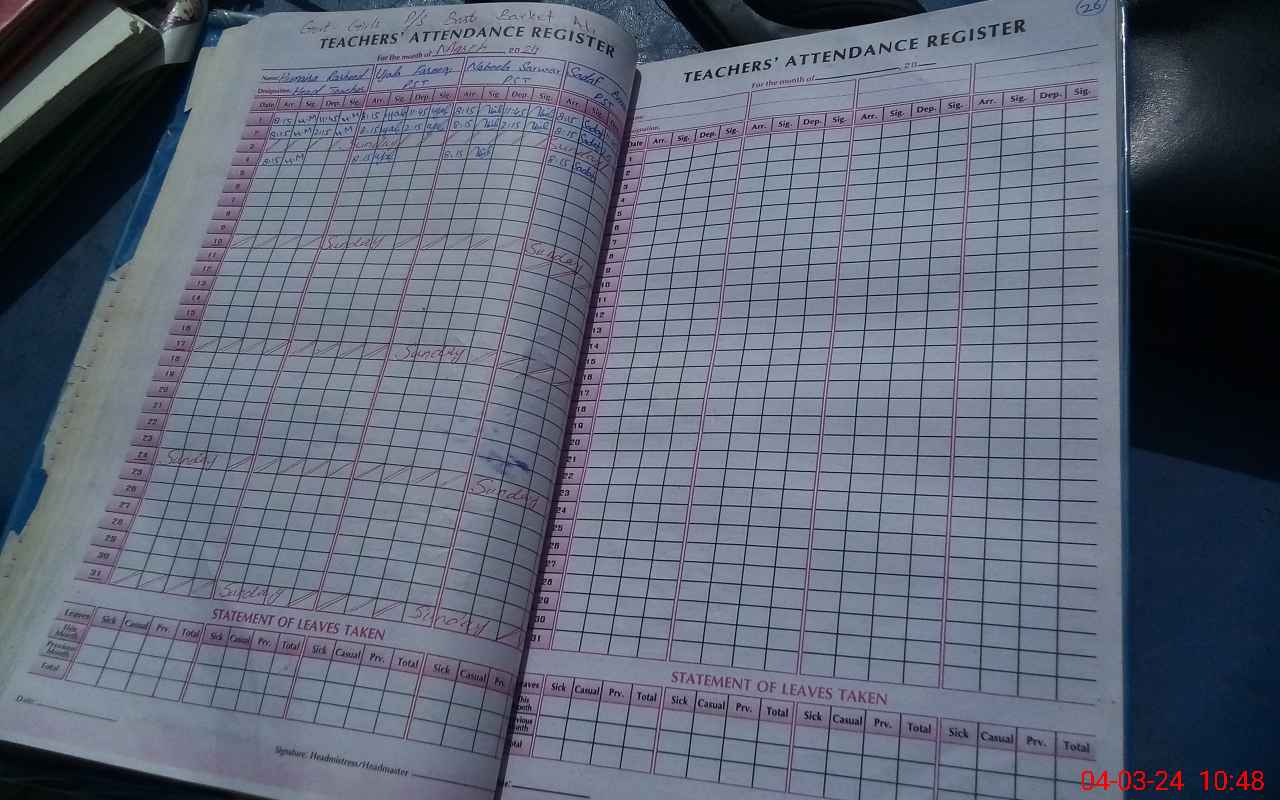 Govt Girls P/S Basti Market
TEACHERS' ATTENDANCE REGISTER
For the month of March 2024
Name: Humaira Rasheed Nabeela Sarwar Sadaf
Designation: Head Teacher PST PST PST
Date Arr. Sig. Dep. Sig. Arr. Sig. Dep. Sig. Arr. Sig. Dep. Sig. Arr. Sig.
1 8:15 11:45 8:15 11:45 8:15 11:45 8:15
2 8:15 2:15 8:15 2:15 8:15 2:15 8:15
3 Sunday Sunday
4 8:15 8:15 8:15 8:15
5
6
7
8
9
10 Sunday Sunday
11
12
13
14
15
16
17 Sunday
18
19
20
21
22
23
24 Sunday Sunday
25
26
27
28
29
30
31 Sunday Sunday
STATEMENT OF LEAVES TAKEN
Leaves Sick Casual Prv. Total Sick Casual Prv. Total Sick Casual Prv. Total Sick Casual Prv.
This Month
Previous Month
Total
Date:
Signature. Headmistress/Headmaster
26
TEACHERS' ATTENDANCE REGISTER
For the month of 20
Date Arr. Sig. Dep. Sig. Arr. Sig. Dep. Sig. Arr. Sig. Dep. Sig. Arr. Sig. Dep. Sig.
1
2
3
4
5
6
7
8
9
10
11
12
13
14
15
16
17
18
19
20
21
22
23
24
25
26
27
28
29
30
31
STATEMENT OF LEAVES TAKEN
Sick Casual Prv. Total Sick Casual Prv. Total Sick Casual Prv. Total Sick Casual Prv. Total
04-03-24 10:48